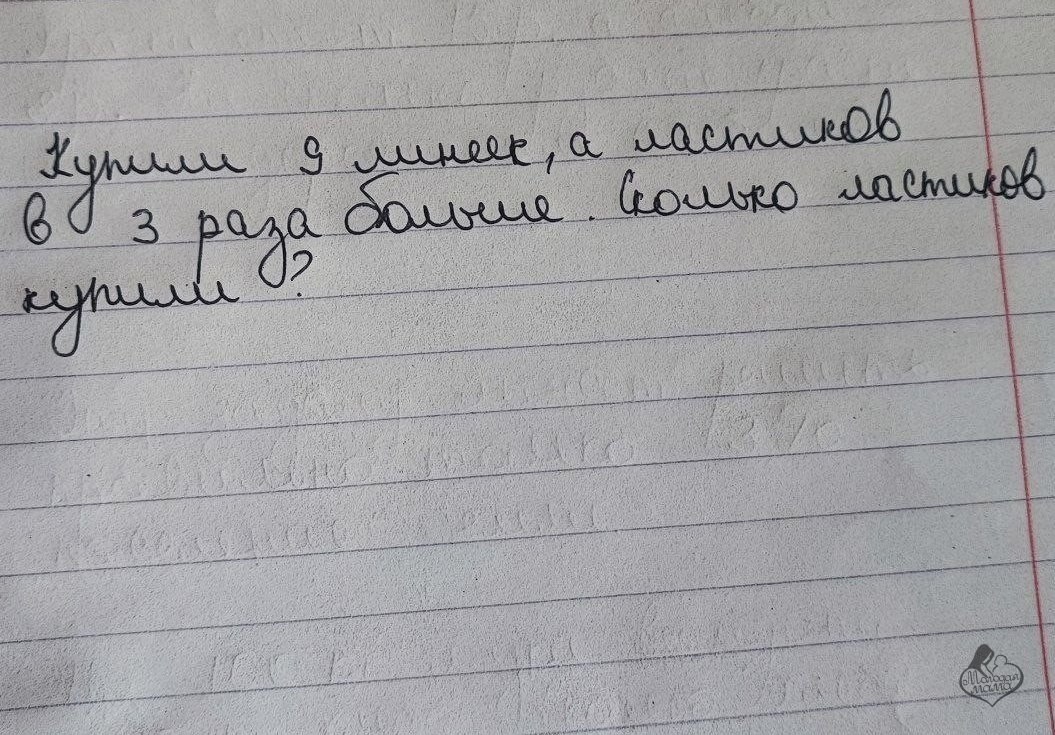 Купили 9 линеек, а ластиков
в 3 раза больше. Сколько ластиков
купили?
Молодая
мама